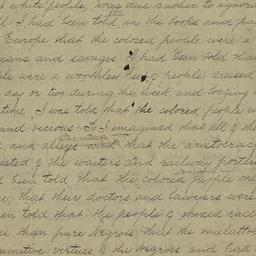 t white people, was due rather to ignora
I had been told in the books and pa
Europe that the colored people were a
ians and savages I had been told tha
le were a worthless set of people, dressed
day or two during the week, and loafing
time. I was told that the colored people w
and viceous So I imagined that all of th
, and alleys and that the aristocrac
isted of the waiters and railway porters
d been told that the colored people we
e; that their doctors and lawyers were
en told that the people of mixed rac
er than pure Negroes, that the mulattoe
rimative virtues of the Negroes and had